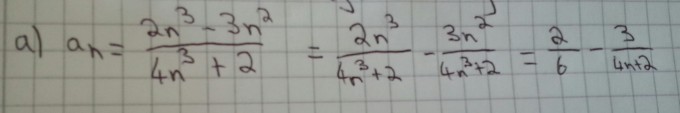 a) aₙ = (2n³ - 3n²)/(4n³ + 2) = 2n³/(4n³+2) - 3n²/(4n³+2) = 2/6 - 3/(4n+2)